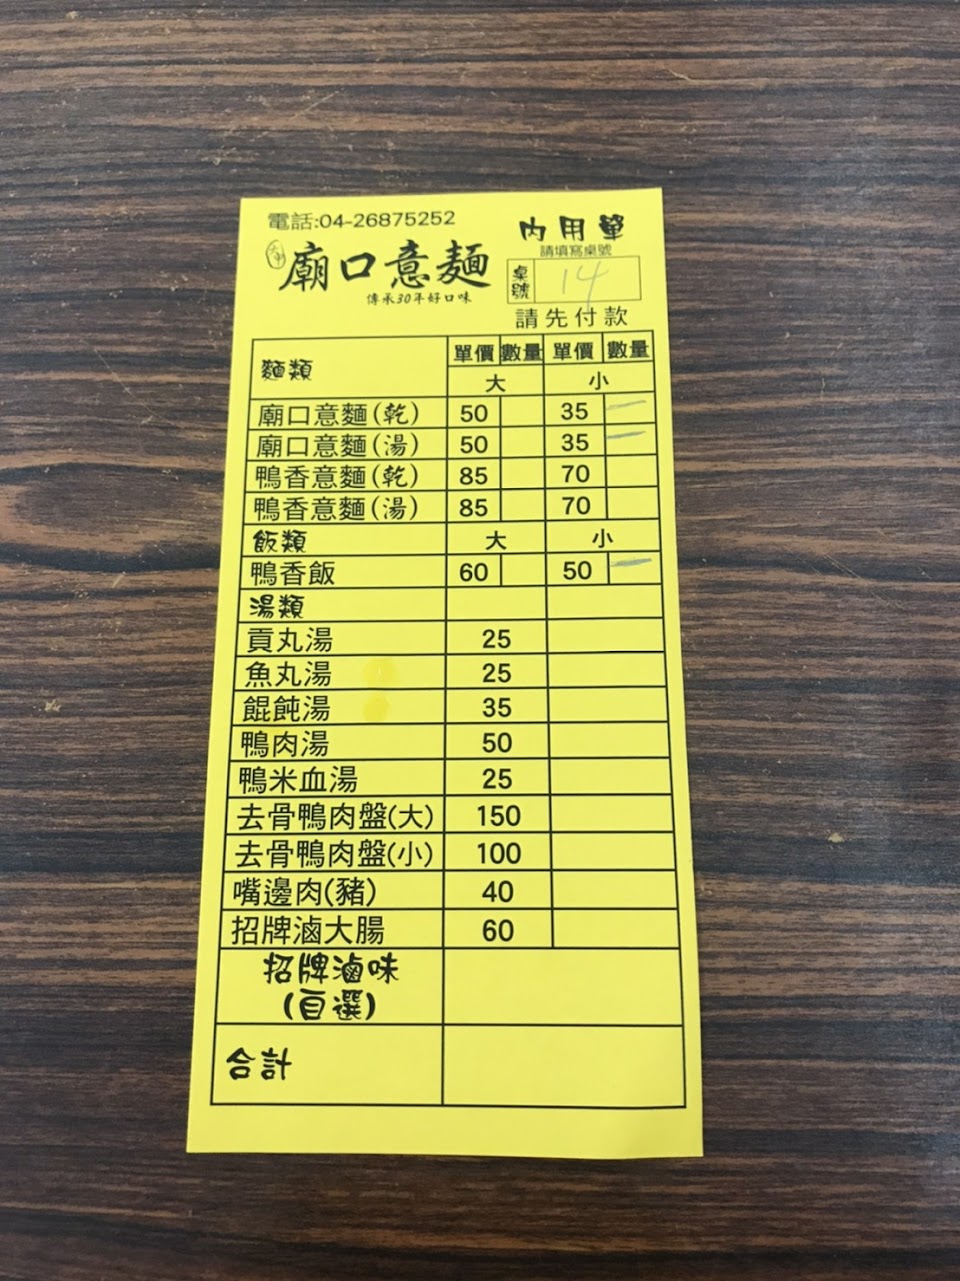 電話:04-26875252
內用單
請填寫桌號
廟口意麵
桌號 14
傳承30年好口味
請先付款
麵類 單價 數量 單價 數量
大 小
廟口意麵(乾) 50 35 一
廟口意麵(湯) 50 35 一
鴨香意麵(乾) 85 70
鴨香意麵(湯) 85 70
飯類 大 小
鴨香飯 60 50 一
湯類
貢丸湯 25
魚丸湯 25
餛飩湯 35
鴨肉湯 50
鴨米血湯 25
去骨鴨肉盤(大) 150
去骨鴨肉盤(小) 100
嘴邊肉(豬) 40
招牌滷大腸 60
招牌滷味
(自選)
合計